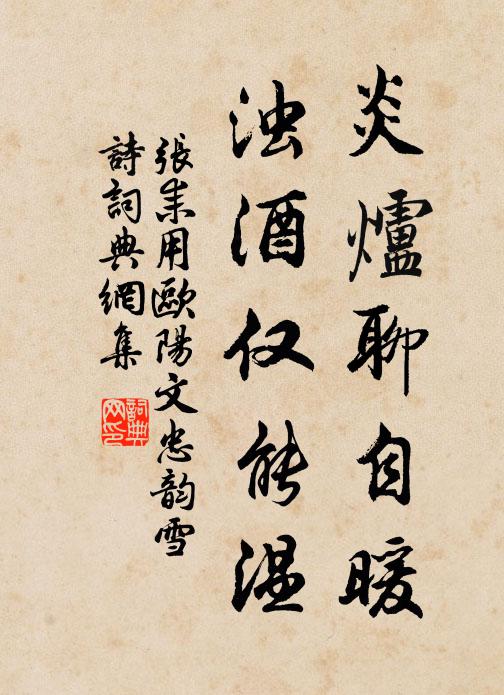 炎爐聊自暖
浊酒仅能温
張耒用歐陽文忠韵雪
詩詞典網集
詞典网印